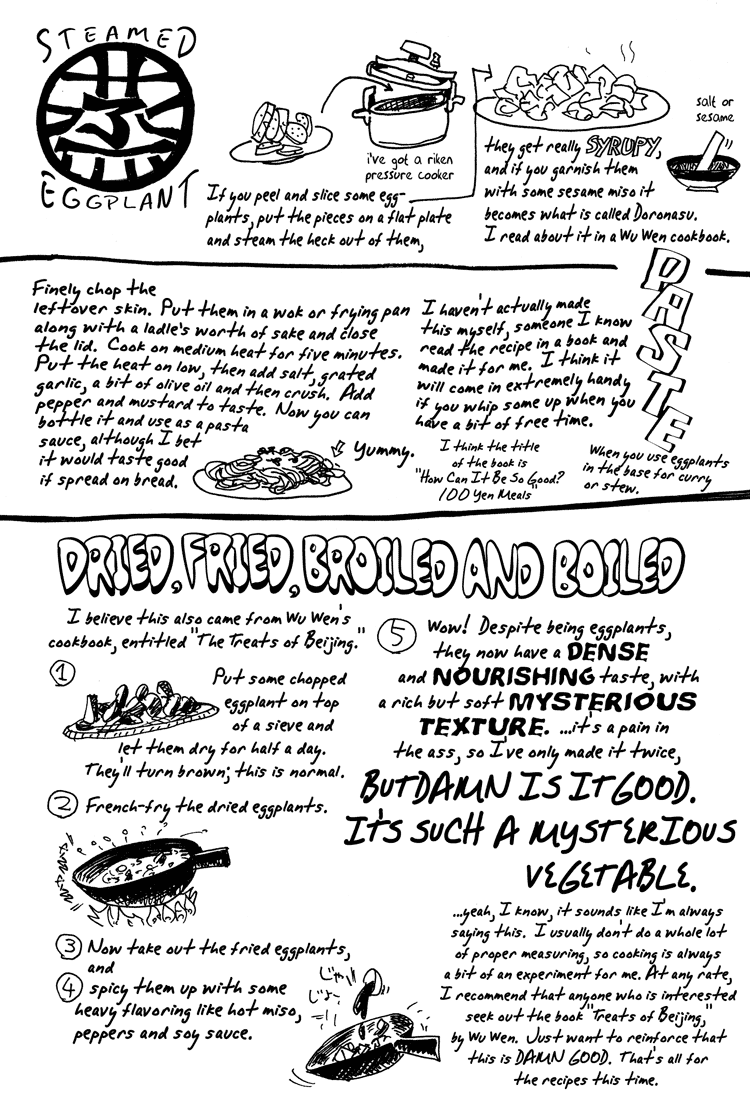 STEAMED
EGGPLANT
i've got a riken
pressure cooker
If you peel and slice some egg-
plants, put the pieces on a flat plate
and steam the heck out of them,
they get really SYRUPY,
and if you garnish them
with some sesame miso it
becomes what is called Doronasu.
I read about it in a Wu Wen cookbook.
salt or
sesame
PASTE
Finely chop the
leftover skin. Put them in a wok or frying pan
along with a ladle's worth of sake and close
the lid. Cook on medium heat for five minutes.
Put the heat on low, then add salt, grated
garlic, a bit of olive oil and then crush. Add
pepper and mustard to taste. Now you can
bottle it and use as a pasta
sauce, although I bet
it would taste good
if spread on bread.
Yummy.
I haven't actually made
this myself, someone I know
read the recipe in a book and
made it for me. I think it
will come in extremely handy
if you whip some up when you
have a bit of free time.
I think the title
of the book is
"How Can It Be So Good?
100 Yen Meals"
When you use eggplants
in the base for curry
or stew.
DRIED, FRIED, BROILED AND BOILED
I believe this also came from Wu Wen's
cookbook, entitled "The Treats of Beijing."
1
Put some chopped
eggplant on top
of a sieve and
let them dry for half a day.
They'll turn brown; this is normal.
2 French-fry the dried eggplants.
3 Now take out the fried eggplants,
and
4 spicy them up with some
heavy flavoring like hot miso,
peppers and soy sauce.
5 Wow! Despite being eggplants,
they now have a DENSE
and NOURISHING taste, with
a rich but soft MYSTERIOUS
TEXTURE. ...it's a pain in
the ass, so I've only made it twice,
BUT DAMN IS IT GOOD.
IT'S SUCH A MYSTERIOUS
VEGETABLE.
...yeah, I know, it sounds like I'm always
saying this. I usually don't do a whole lot
of proper measuring, so cooking is always
a bit of an experiment for me. At any rate,
I recommend that anyone who is interested
seek out the book "Treats of Beijing,"
by Wu Wen. Just want to reinforce that
this is DAMN GOOD. That's all for
the recipes this time.